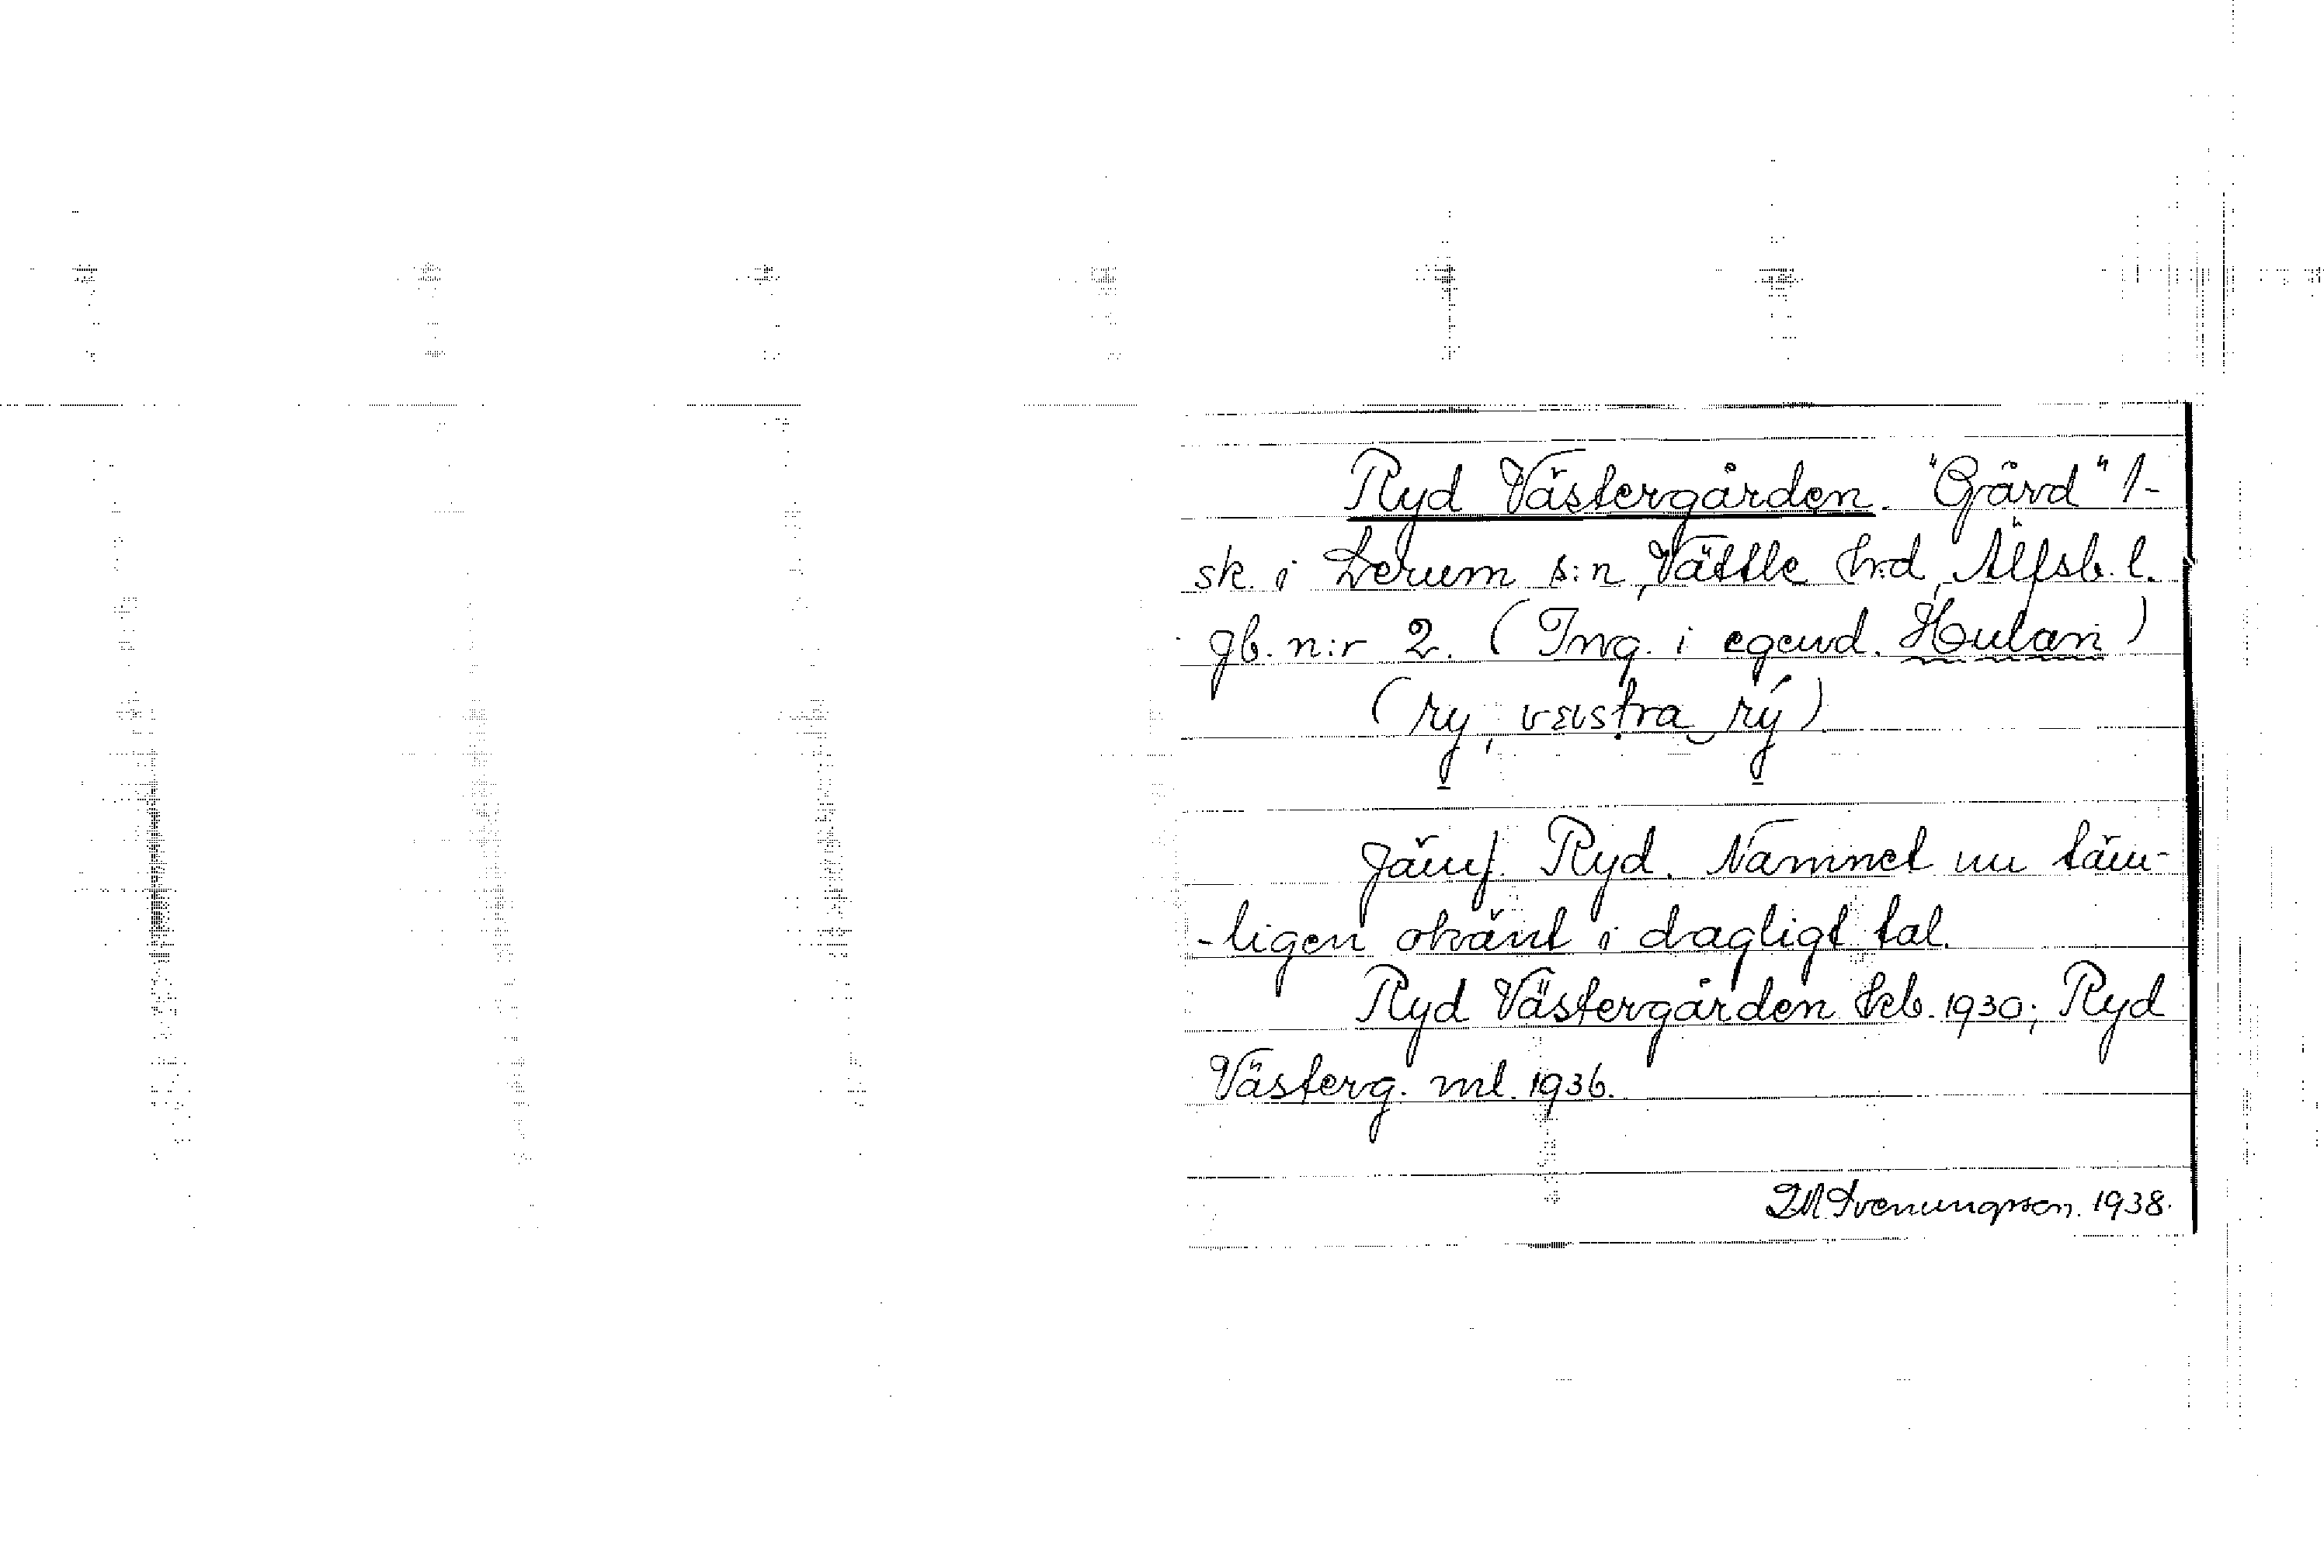 Ryd Västergården. "Gård" 1-
sk. i Lerum s:n, Vättle hrd, Älfsb. l.
gb. n:r 2. (Ing. i egend. Hulan)
(ry, västra ry)
Jämf. Ryd. Namnet nu täm-
-ligen okänt i dagligt tal.
Ryd Västergården kb. 1930; Ryd
Västerg. ml. 1936.
Svenungsson. 1938.